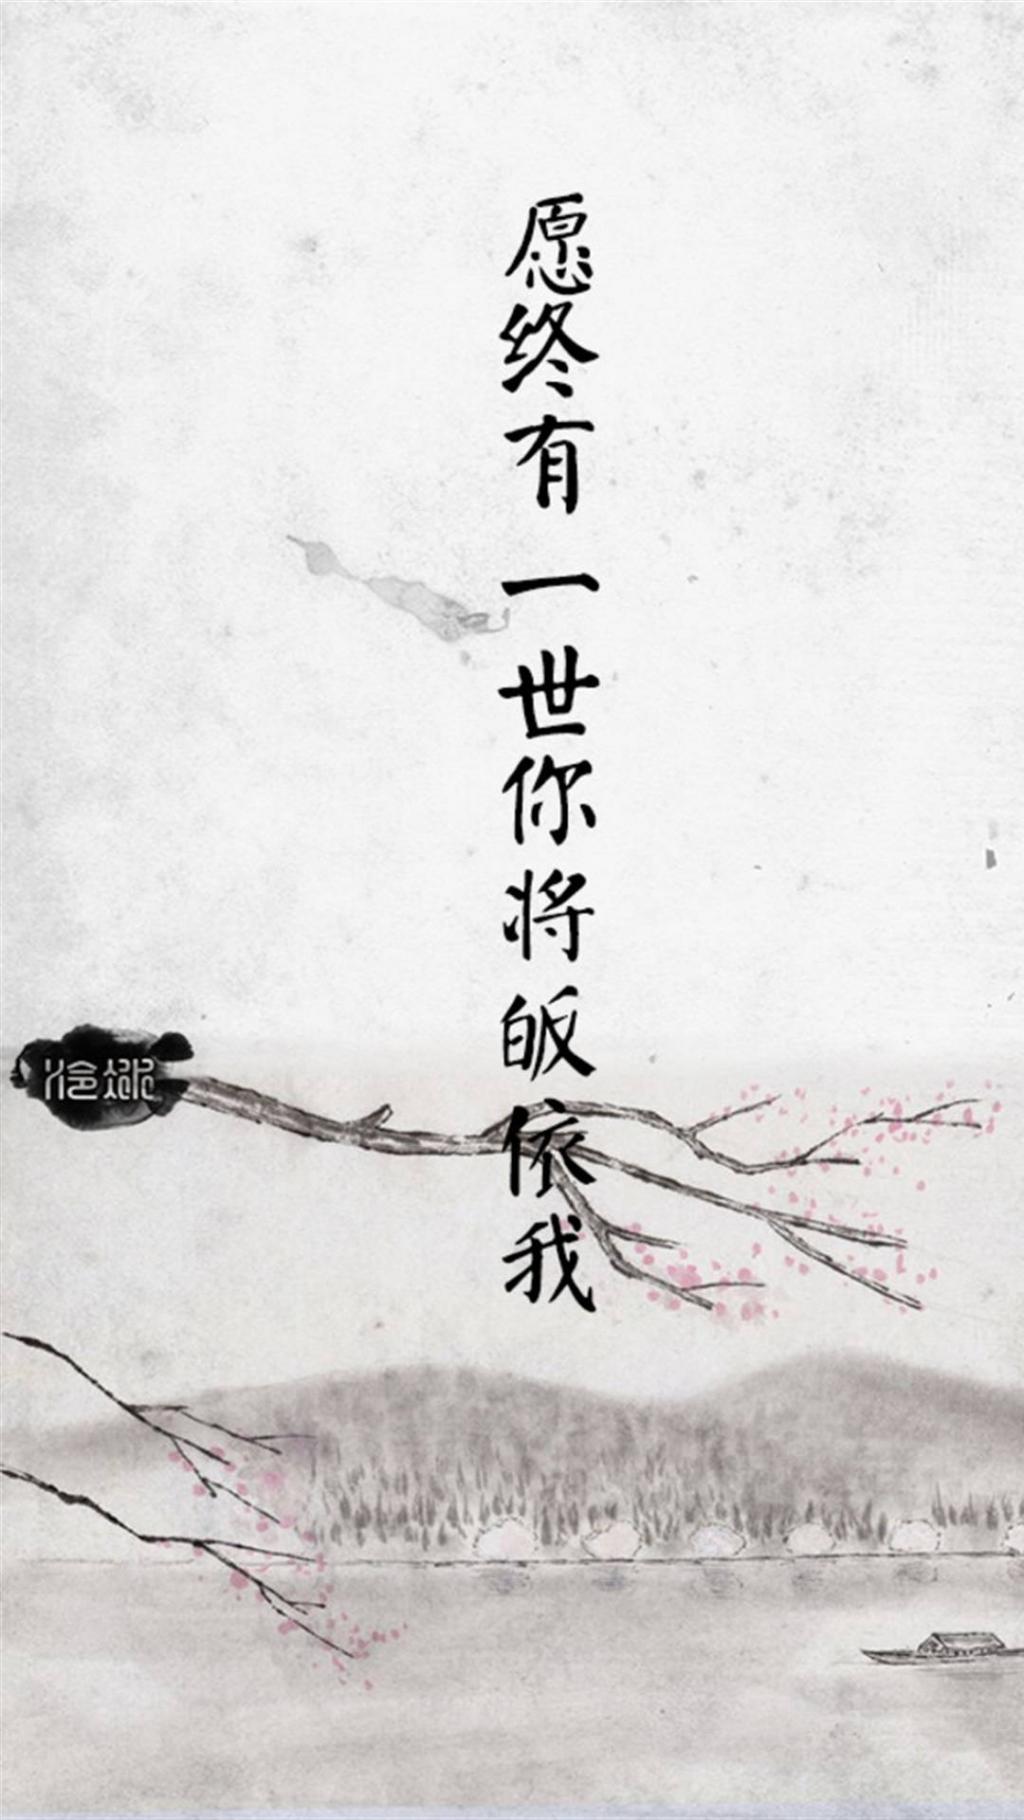 愿终有一世你将皈依我